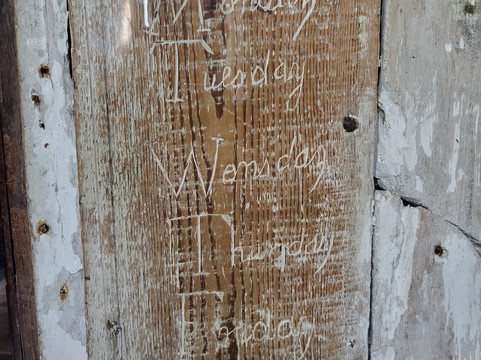 Monday
Tuesday
Wensday
Thursday
Friday